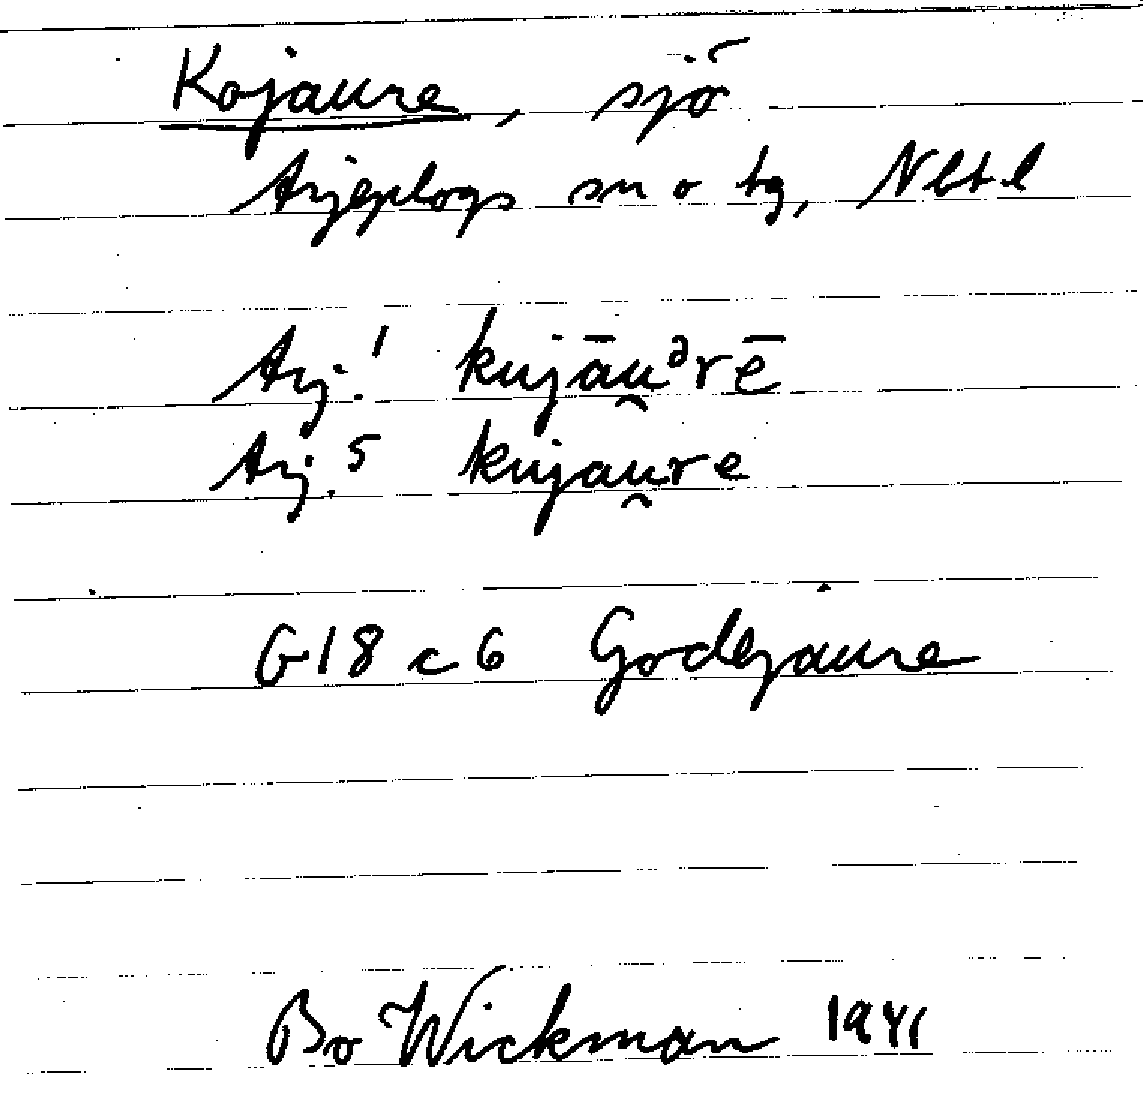 Kojaure, sjö
Arjeplogs sn o tg, Nbt l
Arj.¹ kujāu̯ᵊrē
Arj.⁵ kujau̯re
G18 c 6 Godejaure
Bo Wickman 1941